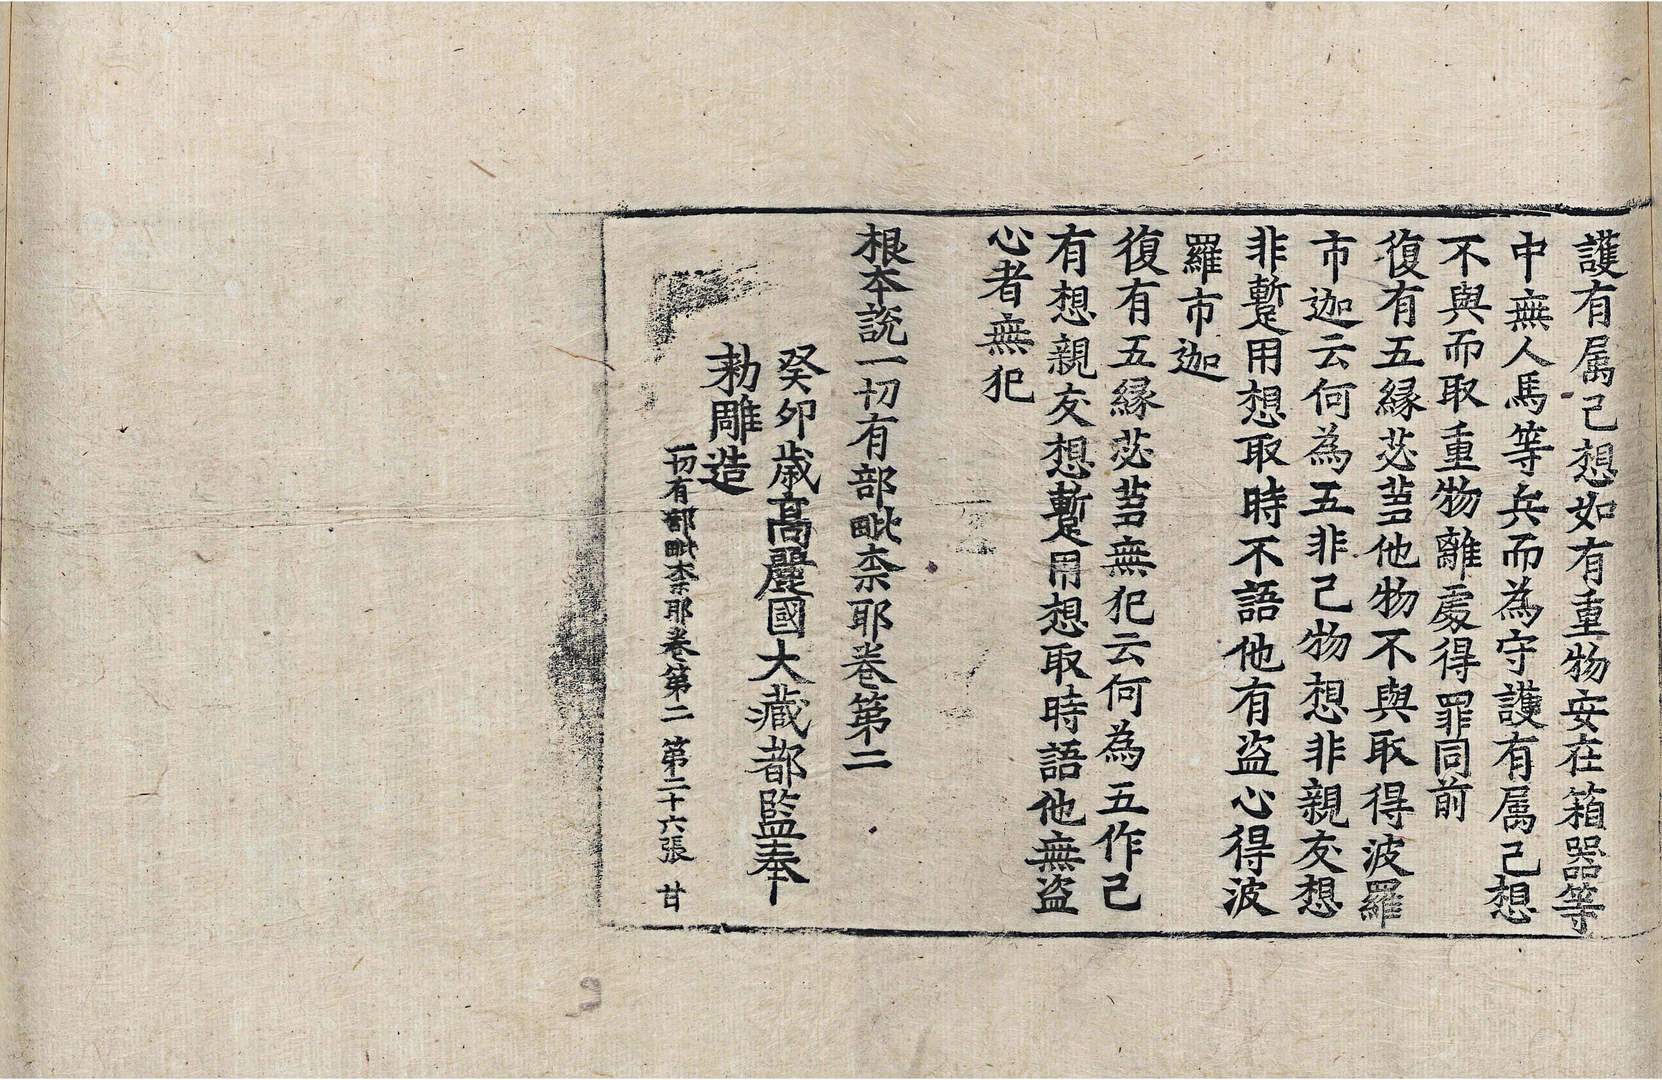 護有属己想如有重物安在箱器等
中無人馬等兵而為守護有属己想
不與而取重物離處得罪同前
復有五縁苾蒭他物不與取得波羅
市迦云何為五非己物想非親友想
非蹔用想取時不語他有盗心得波
羅市迦
復有五縁苾蒭無犯云何為五作己
有想親友想蹔用想取時語他無盗
心者無犯
根本說一切有部毗柰耶卷第二
癸卯歳髙麗國大藏都監奉
勑雕造
一切有部毗柰耶卷第二 第二十六張 甘